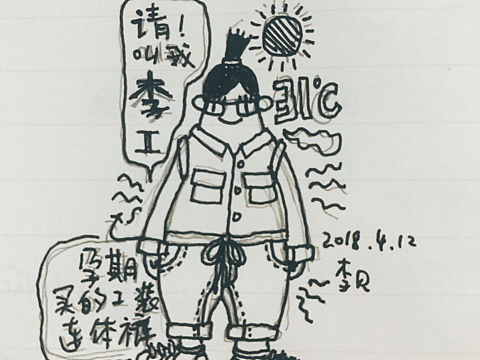 请！
叫我
李
工
31℃
孕期
买的工装
连体裤
2018.4.12
李